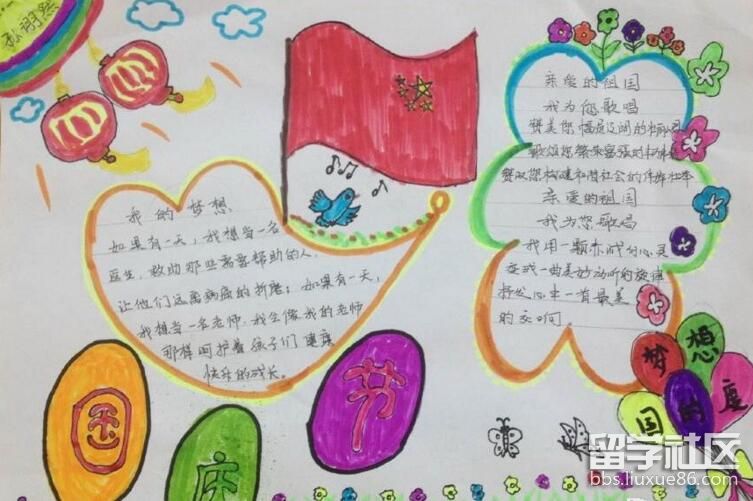 我的梦想
如果有一天,我想当一名
医生,救助那些需要帮助的人,
让他们远离病痛的折磨;如果有一天,
我想当一名老师,我会像我的老师
那样呵护着孩子们健康
快乐的成长。
亲爱的祖国
我为您歌唱
赞美您幅员辽阔的
歌颂您繁荣富强的
赞叹您构建和谐社会的
亲爱的祖国
我为您歌唱
我用一颗赤诚的心灵
在找一曲美妙动听的旋律
抒发心中一首最美
的交响
国庆节
梦想
国的度
留学社区
bbs.liuxue86.com